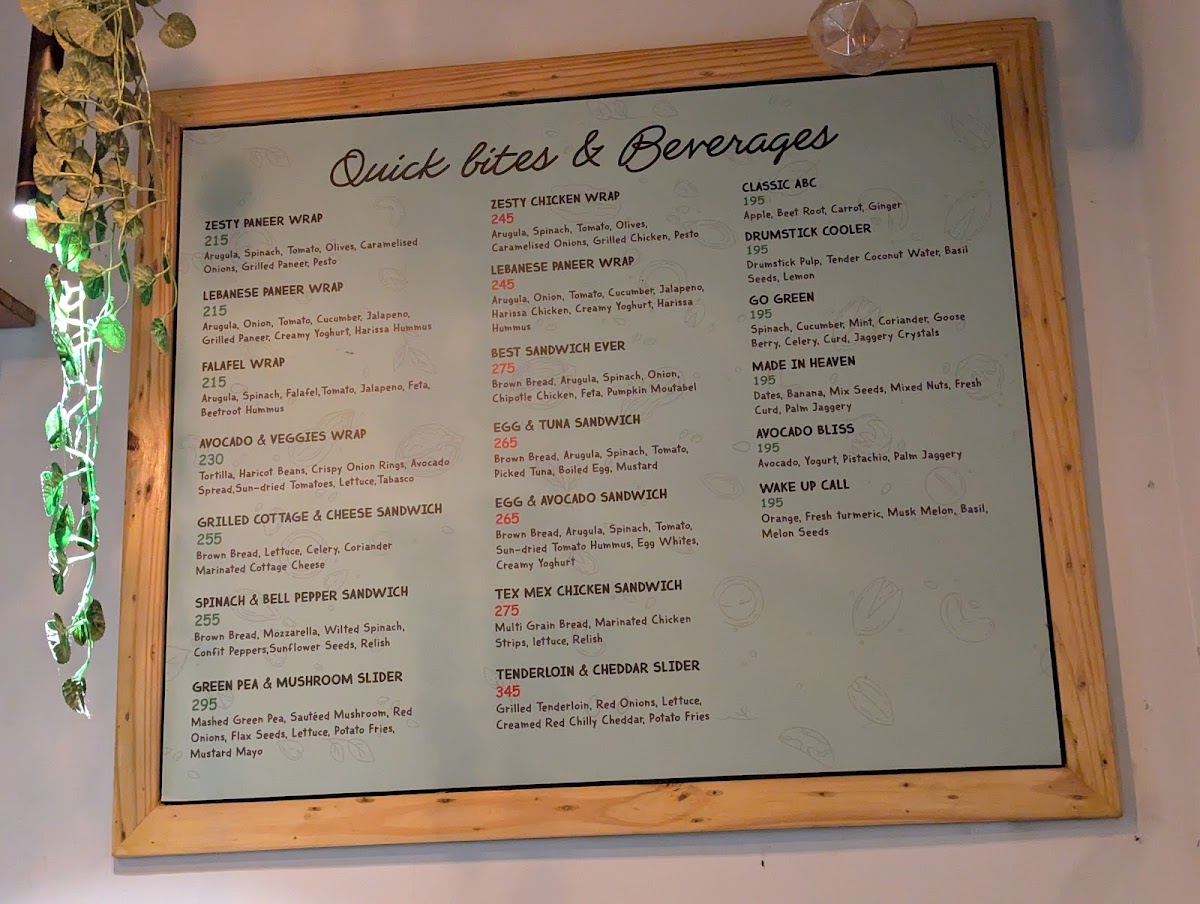 Quick bites & Beverages
ZESTY PANEER WRAP
215
Arugula, Spinach, Tomato, Olives, Caramelised
Onions, Grilled Paneer, Pesto
LEBANESE PANEER WRAP
215
Arugula, Onion, Tomato, Cucumber, Jalapeno,
Grilled Paneer, Creamy Yoghurt, Harissa Hummus
FALAFEL WRAP
215
Arugula, Spinach, Falafel,Tomato, Jalapeno, Feta,
Beetroot Hummus
AVOCADO & VEGGIES WRAP
230
Tortilla, Haricot Beans, Crispy Onion Rings, Avocado
Spread,Sun-dried Tomatoes, Lettuce,Tabasco
GRILLED COTTAGE & CHEESE SANDWICH
255
Brown Bread, Lettuce, Celery, Coriander
Marinated Cottage Cheese
SPINACH & BELL PEPPER SANDWICH
255
Brown Bread, Mozzarella, Wilted Spinach,
Confit Peppers,Sunflower Seeds, Relish
GREEN PEA & MUSHROOM SLIDER
295
Mashed Green Pea, Sautéed Mushroom, Red
Onions, Flax Seeds, Lettuce, Potato Fries,
Mustard Mayo
ZESTY CHICKEN WRAP
245
Arugula, Spinach, Tomato, Olives,
Caramelised Onions, Grilled Chicken, Pesto
LEBANESE PANEER WRAP
245
Arugula, Onion, Tomato, Cucumber, Jalapeno,
Harissa Chicken, Creamy Yoghurt, Harissa
Hummus
BEST SANDWICH EVER
275
Brown Bread, Arugula, Spinach, Onion,
Chipotle Chicken, Feta, Pumpkin Moutabel
EGG & TUNA SANDWICH
265
Brown Bread, Arugula, Spinach, Tomato,
Picked Tuna, Boiled Egg, Mustard
EGG & AVOCADO SANDWICH
265
Brown Bread, Arugula, Spinach, Tomato,
Sun-dried Tomato Hummus, Egg Whites,
Creamy Yoghurt
TEX MEX CHICKEN SANDWICH
275
Multi Grain Bread, Marinated Chicken
Strips, lettuce, Relish
TENDERLOIN & CHEDDAR SLIDER
345
Grilled Tenderloin, Red Onions, Lettuce,
Creamed Red Chilly Cheddar, Potato Fries
CLASSIC ABC
195
Apple, Beet Root, Carrot, Ginger
DRUMSTICK COOLER
195
Drumstick Pulp, Tender Coconut Water, Basil
Seeds, Lemon
GO GREEN
195
Spinach, Cucumber, Mint, Coriander, Goose
Berry, Celery, Curd, Jaggery Crystals
MADE IN HEAVEN
195
Dates, Banana, Mix Seeds, Mixed Nuts, Fresh
Curd, Palm Jaggery
AVOCADO BLISS
195
Avocado, Yogurt, Pistachio, Palm Jaggery
WAKE UP CALL
195
Orange, Fresh turmeric, Musk Melon, Basil,
Melon Seeds